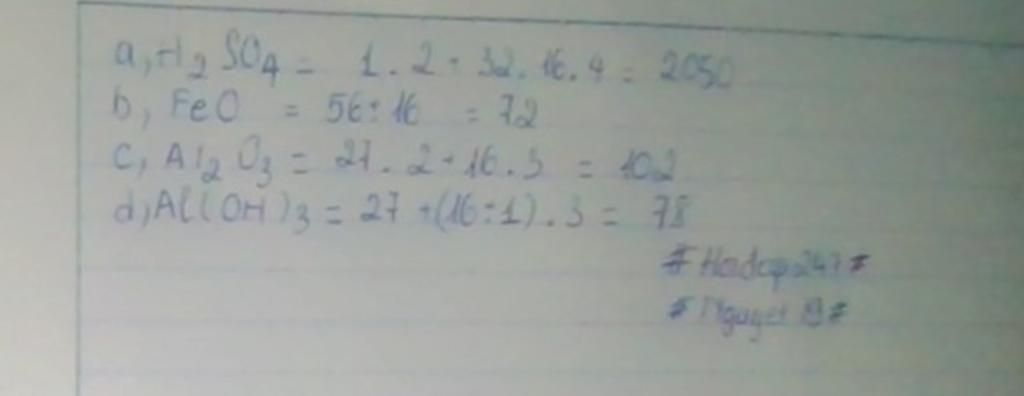 a, H2SO4 = 1 . 2 + 32 . 16 . 4 = 2050
b, FeO = 56 : 16 = 72
c, Al2O3 = 27 . 2 + 16 . 3 = 102
d, Al(OH)3 = 27 + (16 : 1) . 3 = 78
# Hoidap247 #